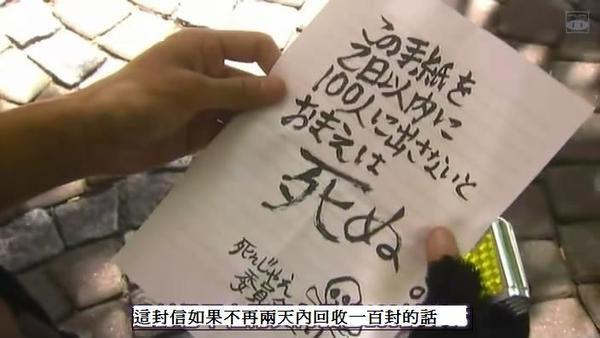 この手紙を
2日以内に
100人に出さないと
おまえは
死ぬ。
死んじゃえ
委員会
這封信如果不再兩天內回收一百封的話